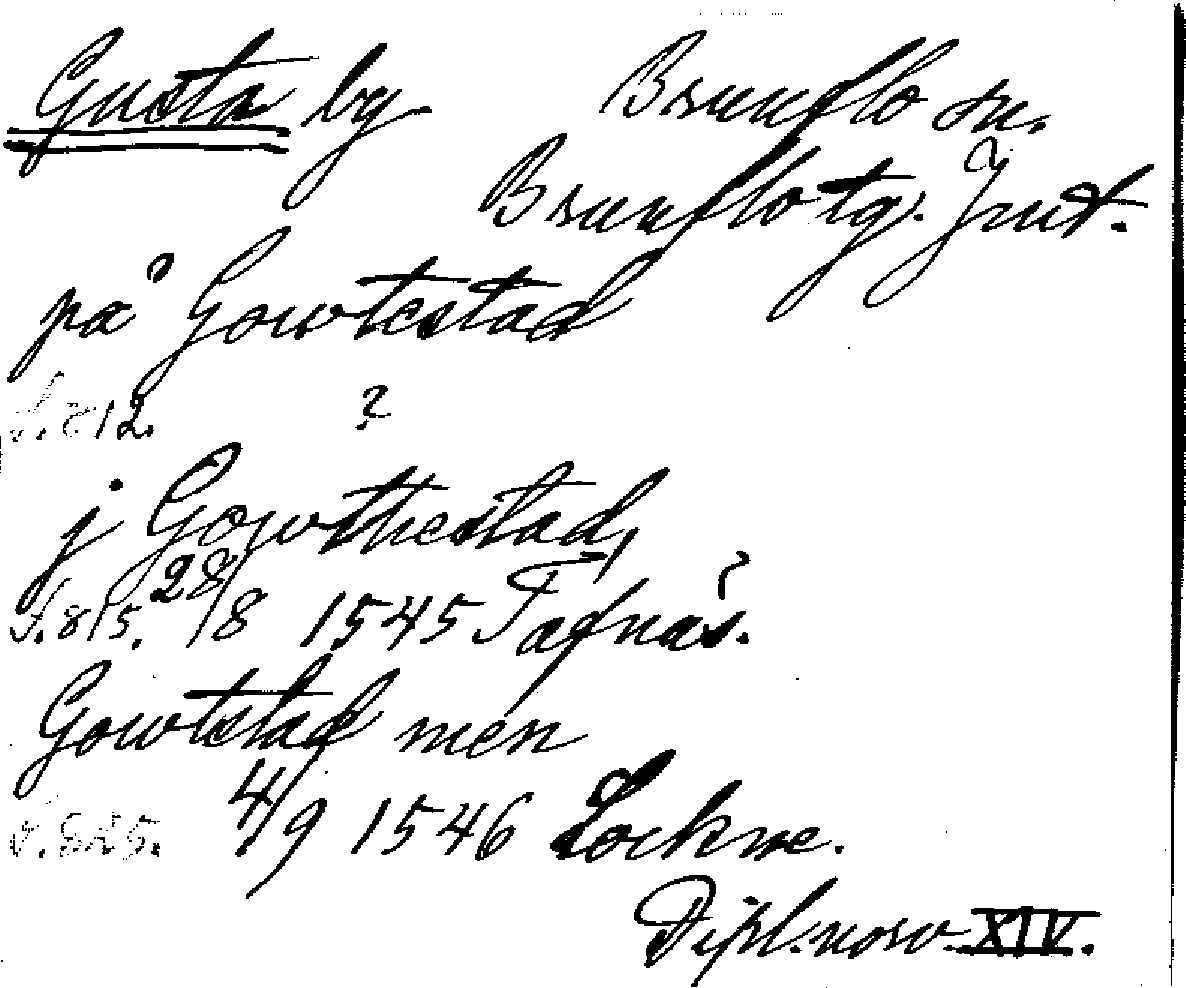 Gusta by Brunflo sn.
Brunflo tg. Jmt.
på Gowtestad
s. 812. ?
j Gowthestad,
s. 815. 28/8 1545 Tafnäs.
Gowtstad men
s. 825. 4/9 1546 Lockne.
Dipl. norv. XIV.